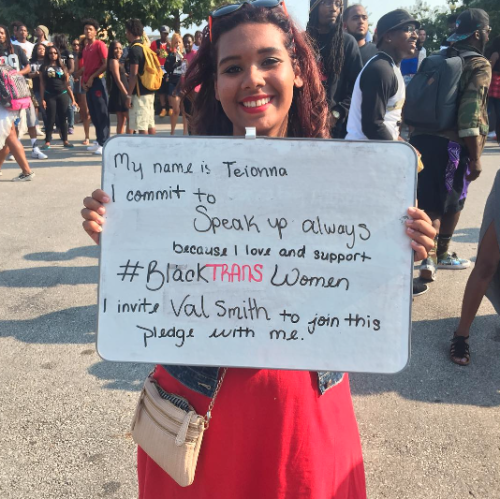 My name is Teionna
I commit to
Speak up always
because I love and support
#BlackTRANS Women
I invite Val Smith to join this
pledge with me.